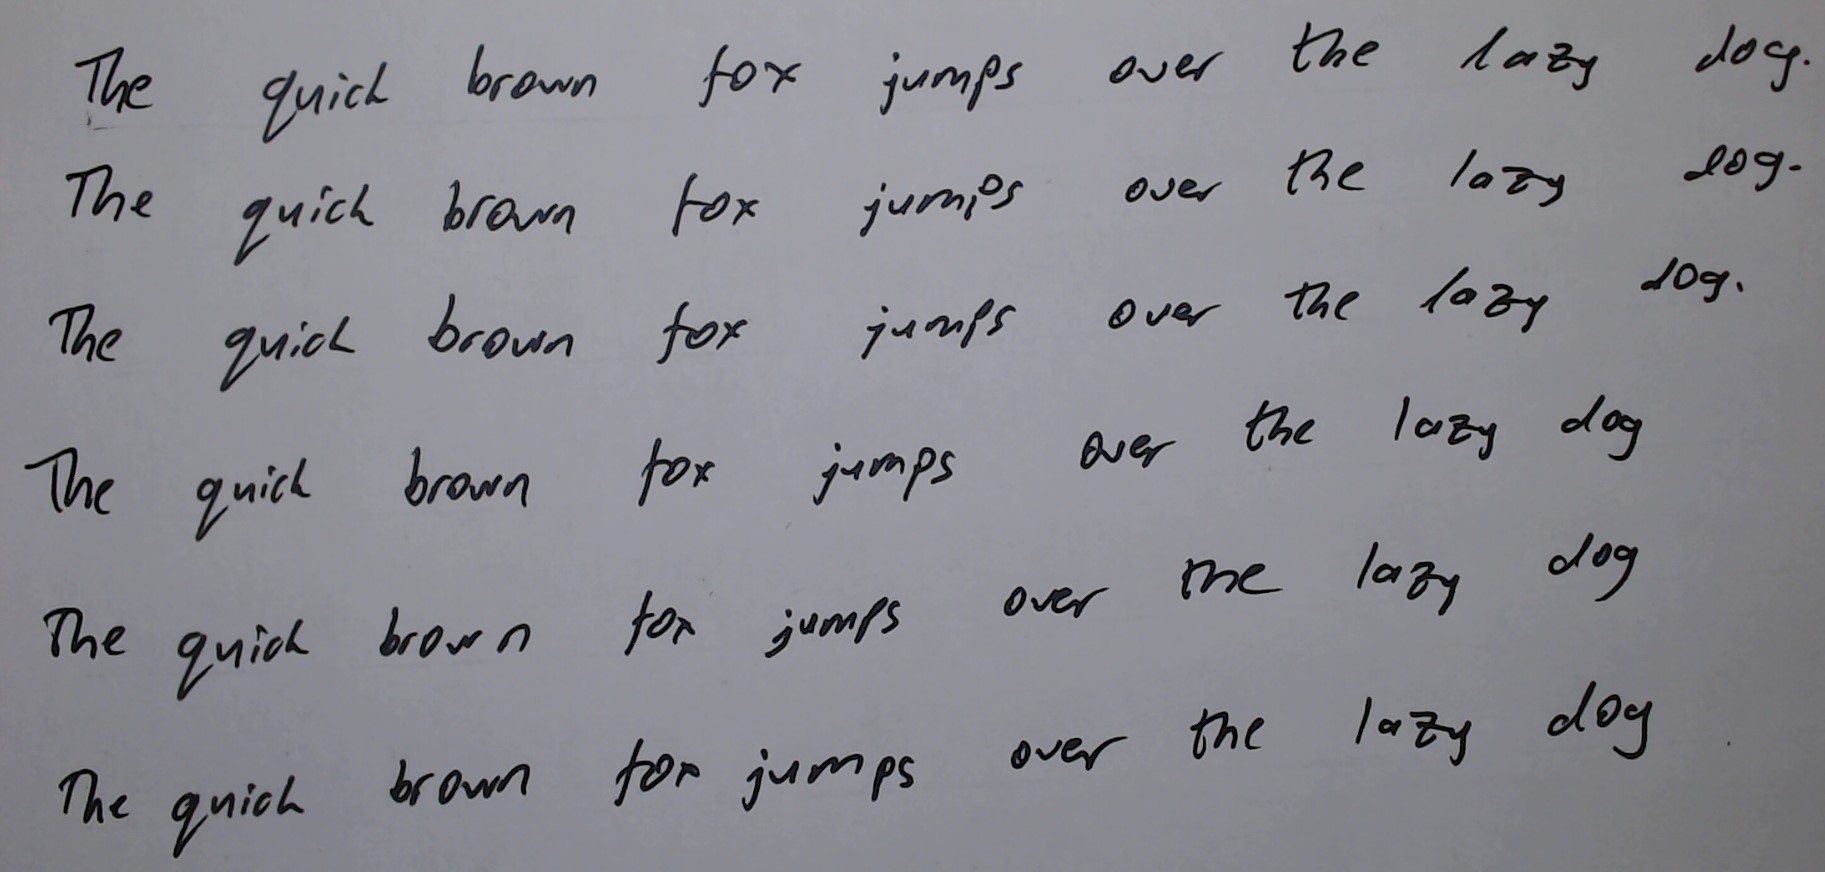 The quick brown fox jumps over the lazy dog.
The quick brown fox jumps over the lazy dog.
The quick brown fox jumps over the lazy dog.
The quick brown fox jumps over the lazy dog
The quick brown fox jumps over the lazy dog
The quick brown fox jumps over the lazy dog